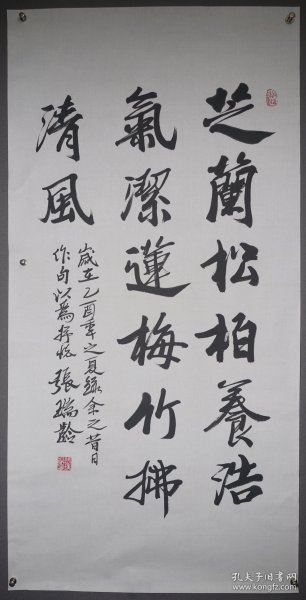 芝蘭松柏養浩
氣潔蓮梅竹拂
清風
歲在乙酉年之夏錄余之昔日
作句以為抒懷 張瑞齡
孔夫子旧书网
book.kongfz.com